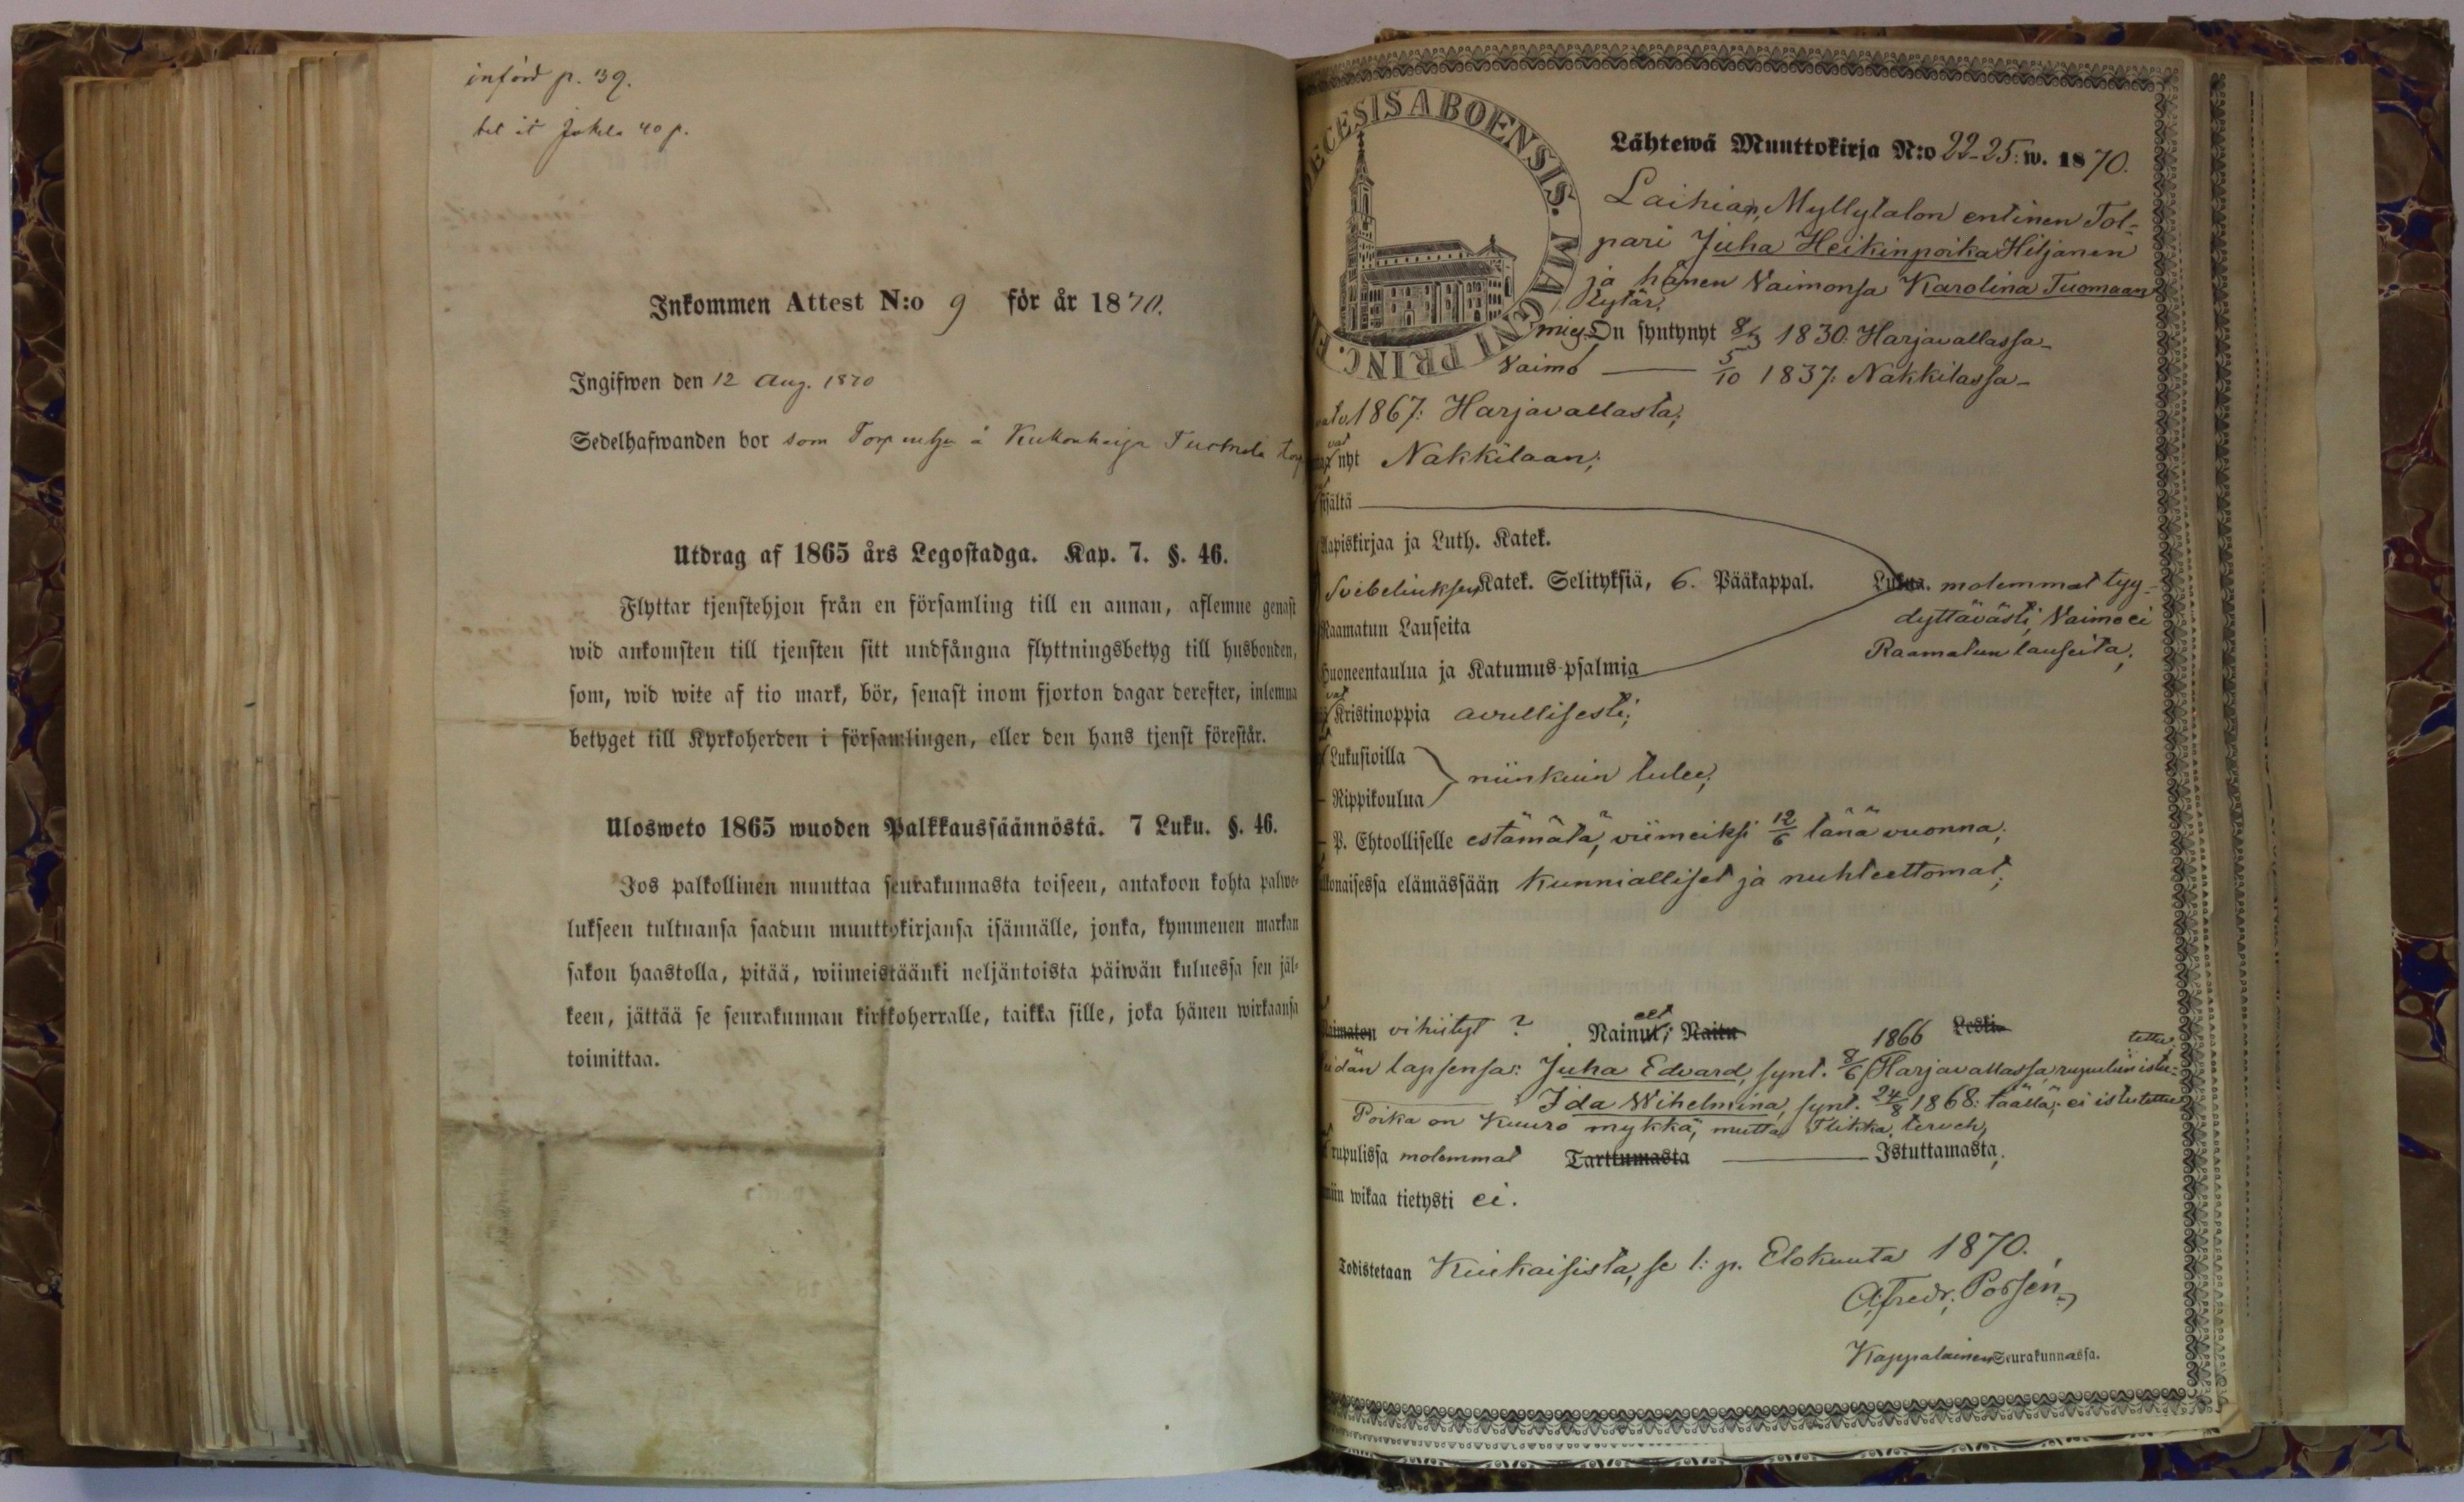 införd p. 39.
Inkommen Attest N:o 9 för år 1870.
Ingifwen den 12 Aug. 1870
Sedelhafwanden bor som
Utdrag af 1865 års Legostadga. Kap. 7. §. 46.
Flyttar tjenstehjon från en församling till en annan, aflemne genast
wid ankomsten till tjensten sitt undfångna flyttningsbetyg till husbonden,
som, wid wite af tio mark, bör, senast inom fjorton dagar derefter, inlemna
betyget till Kyrkoherden i församlingen, eller den hans tjenst förestår.
Ulosweto 1865 wuoden Palkkaussäännöstä. 7 Luku. §. 46.
Jos palkollinen muuttaa seurakunnasta toiseen, antakoon kohta palwe-
lukseen tultuansa saadun muuttokirjansa isännälle, jonka, kymmenen markan
sakon haastolla, pitää, wiimeistäänki neljäntoista päiwän kuluessa sen jäl-
keen, jättää se seurakunnan kirkkoherralle, taikka sille, joka hänen wirkaansa
toimittaa.
ECESIS ABOENSIS. MAGNI PRINC. F
Lähtewä Muuttokirja N:o 22-25: w. 1870.
Laihian, Myllytalon entinen Tol-
pari Juha Heikinpoika Hiljanen
ja hänen Vaimonsa Karolina Tuomaan
tytär;
mies On syntynyt 8/3 1830: Harjavallassa-
Vaimo — 5/10 1837: Nakkilassa-
1867: Harjavallasta;
nyt Nakkilaan;
sisältä
Aapiskirjaa ja Luth. Katek.
Svebeliuksen Katek. Selityksiä, 6. Pääkappal. Lukua. molemmat tyy-
dyttävästi; Vaimo ei
Raamatun Lauseita
Raamatun lauseita;
Huoneentaulua ja Katumus-psalmia
Kristinoppia avullisesti;
Lukusioilla
niinkuin tulee;
Rippikoulua
P. Ehtoolliselle estämätä, viimeiksi 12/6 tänä vuonna;
ulkonaisessa elämässään kunnialliset ja nuhteettomat;
Naimaton vihityt ? Nainut; Naitu 1866 Leski
tettu
eidän lapsensa: Juha Edvard, synt. 8/6 Harjavallassa, rupuliin istu-
Ida Wihelmina, synt. 24/8 1868: täällä; ei istutettu
Poika on kuuro mykkä, mutta Flikka terveh,
rupulissa molemmat Tarttumasta — Istuttamasta;
wikaa tietysti ei.
Todistetaan Kiukaisista, se 1: p. Elokuuta 1870.
A. Fredr. Porsén
Kappalainen Seurakunnassa.